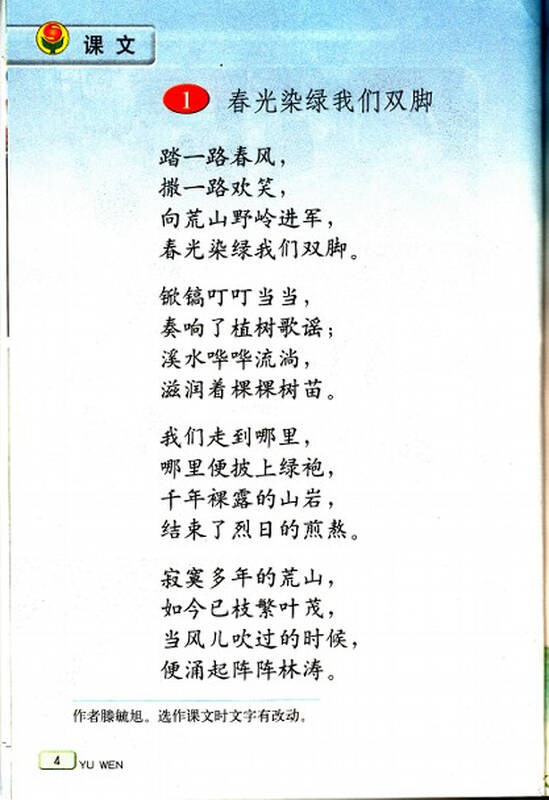 课文
1 春光染绿我们双脚
踏一路春风，
撒一路欢笑，
向荒山野岭进军，
春光染绿我们双脚。
锨镐叮叮当当，
奏响了植树歌谣；
溪水哗哗流淌，
滋润着棵棵树苗。
我们走到哪里，
哪里便披上绿袍，
千年裸露的山岩，
结束了烈日的煎熬。
寂寞多年的荒山，
如今已枝繁叶茂，
当风儿吹过的时候，
便涌起阵阵林涛。
作者滕毓旭。选作课文时文字有改动。
4 YU WEN